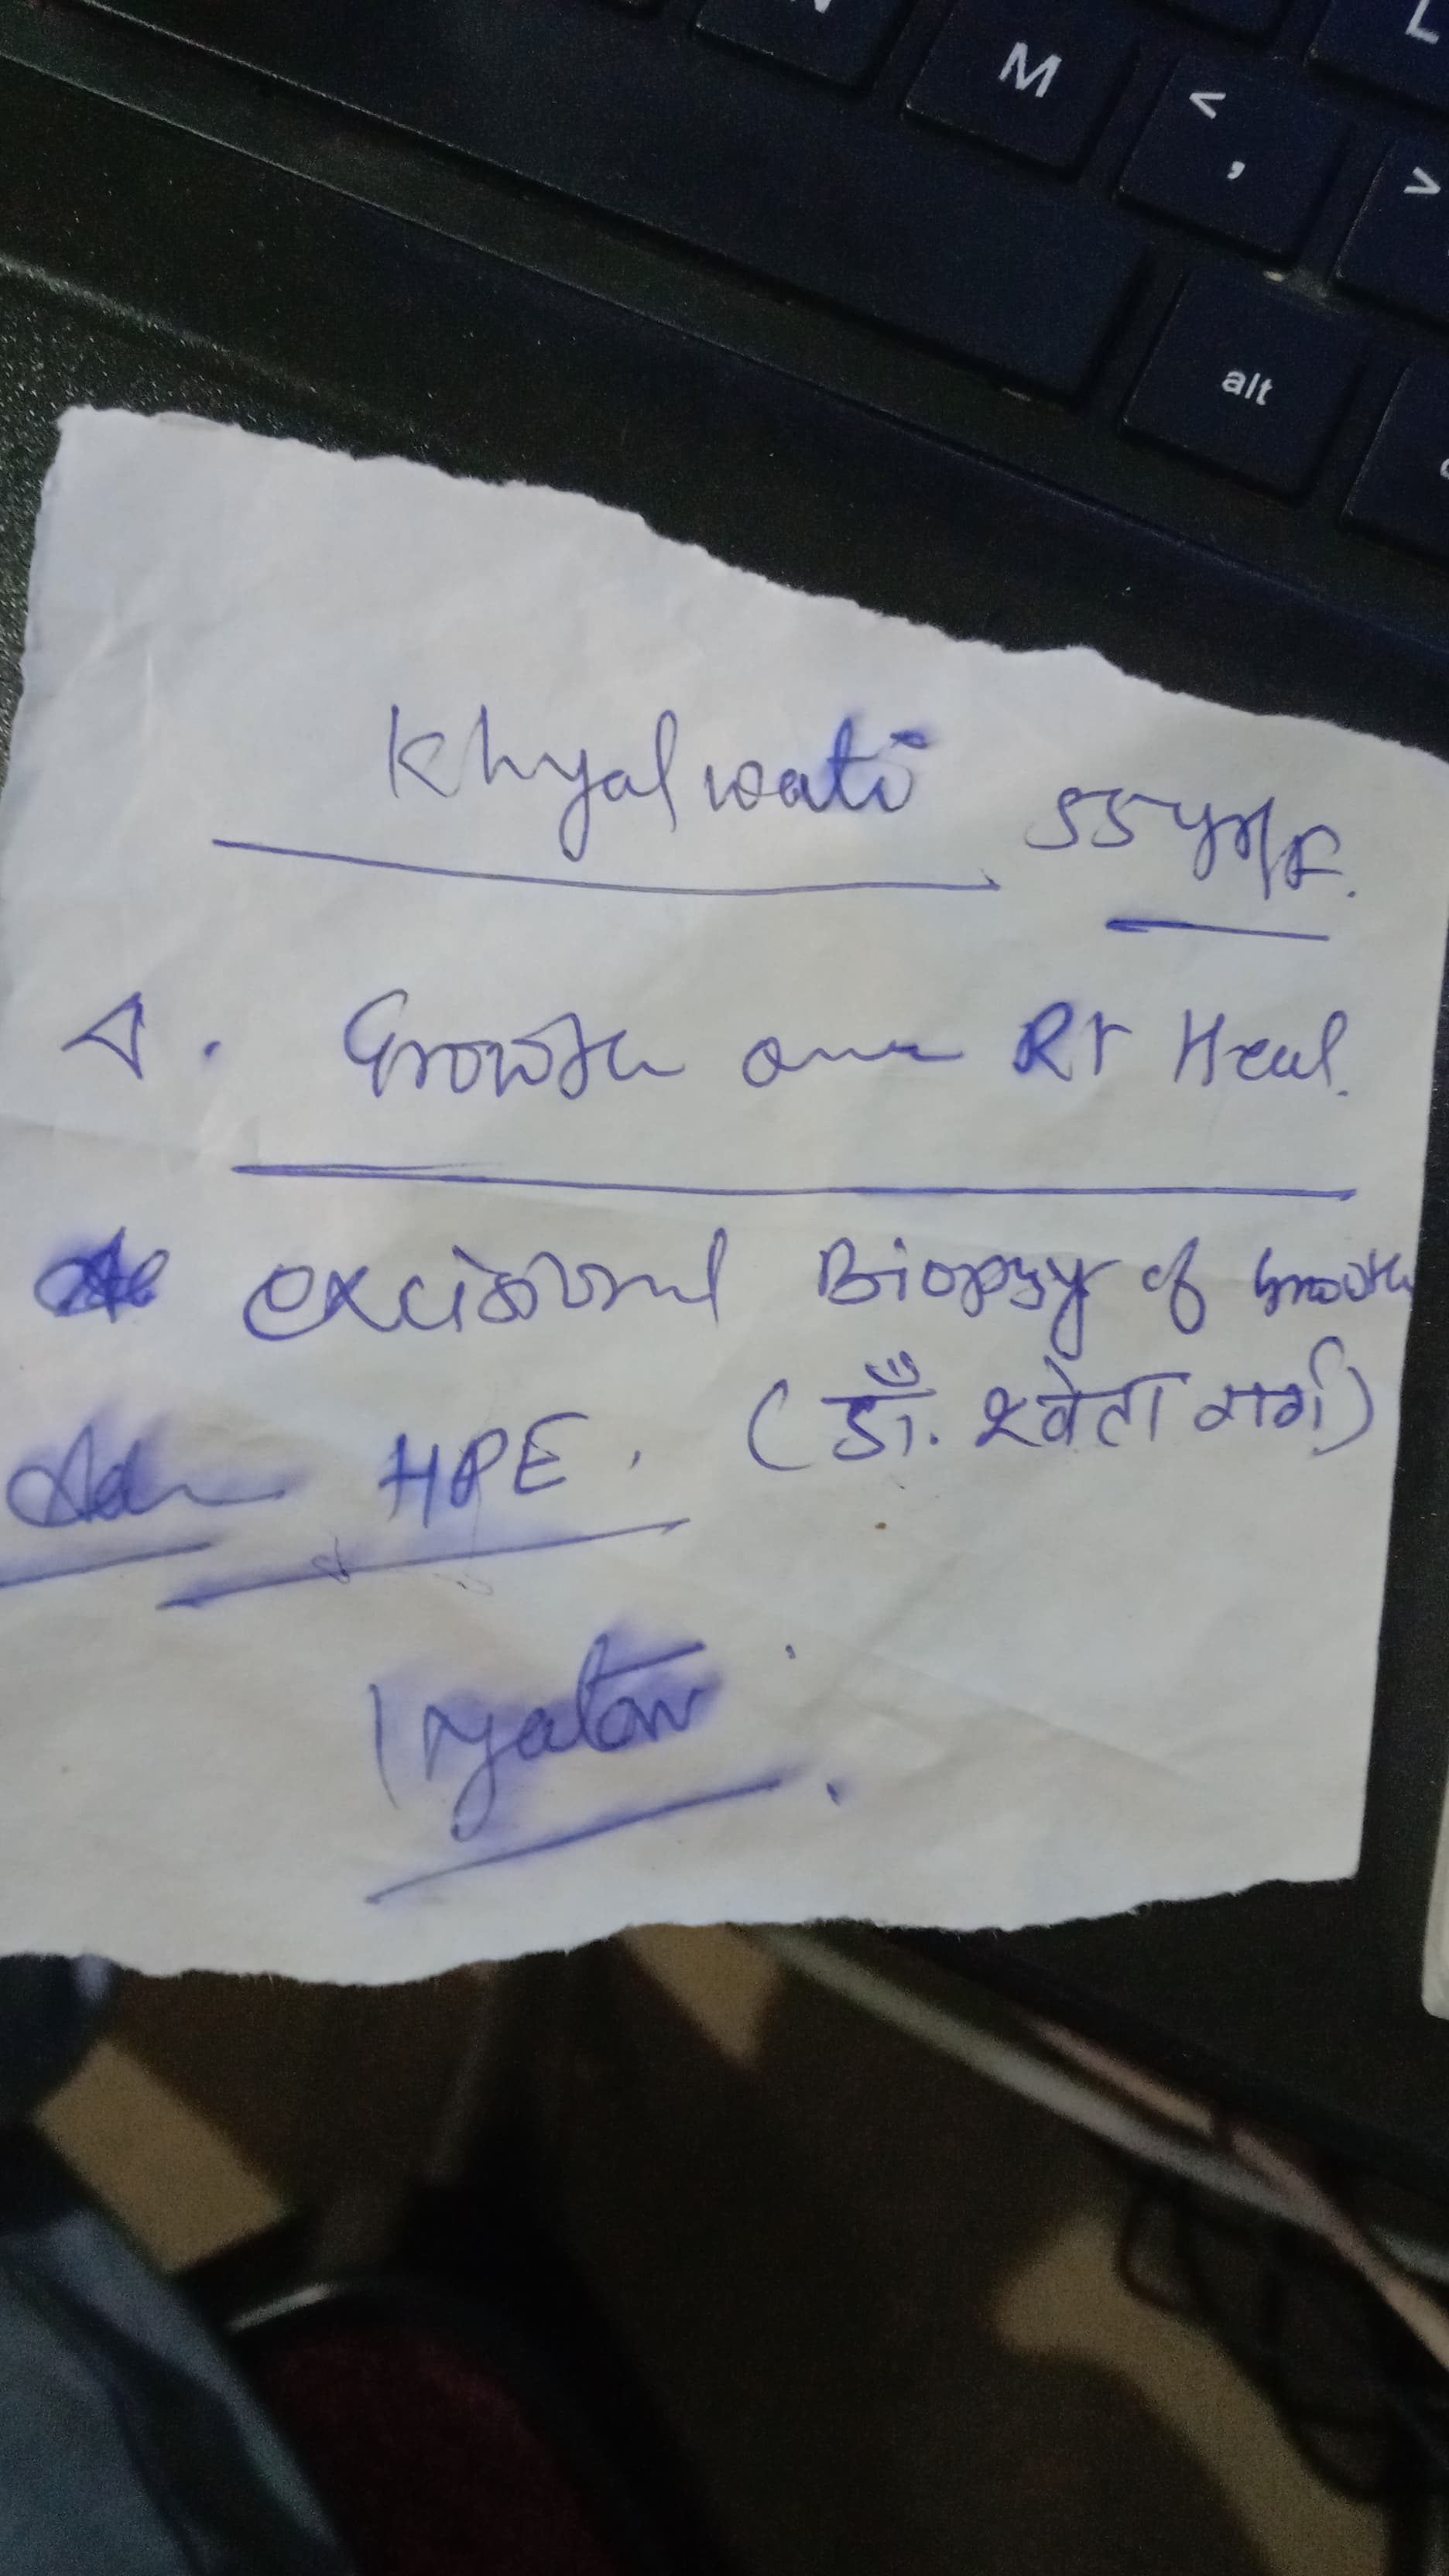 M < , >
alt
Khyalwati 55yr/F.
Δ. Growth over Rt Heal.
excisional Biopsy of Growth
Adv HPE. (डॉ. श्वेता गर्ग)